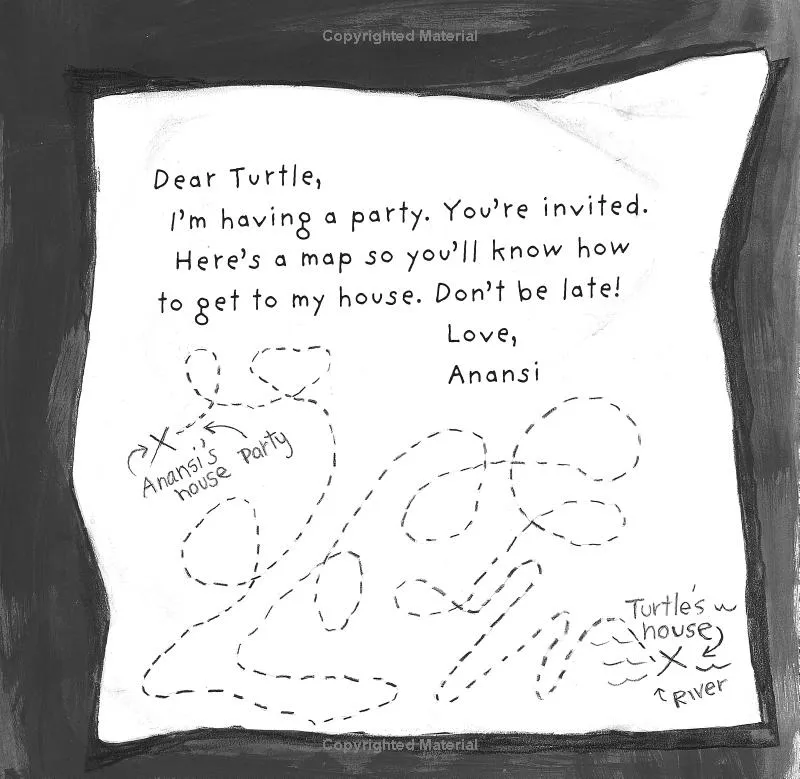 Copyrighted Material
Dear Turtle,
I'm having a party. You're invited.
Here's a map so you'll know how
to get to my house. Don't be late!
Love,
Anansi
Anansi's
house
Party
Turtle's
house
River
Copyrighted Material